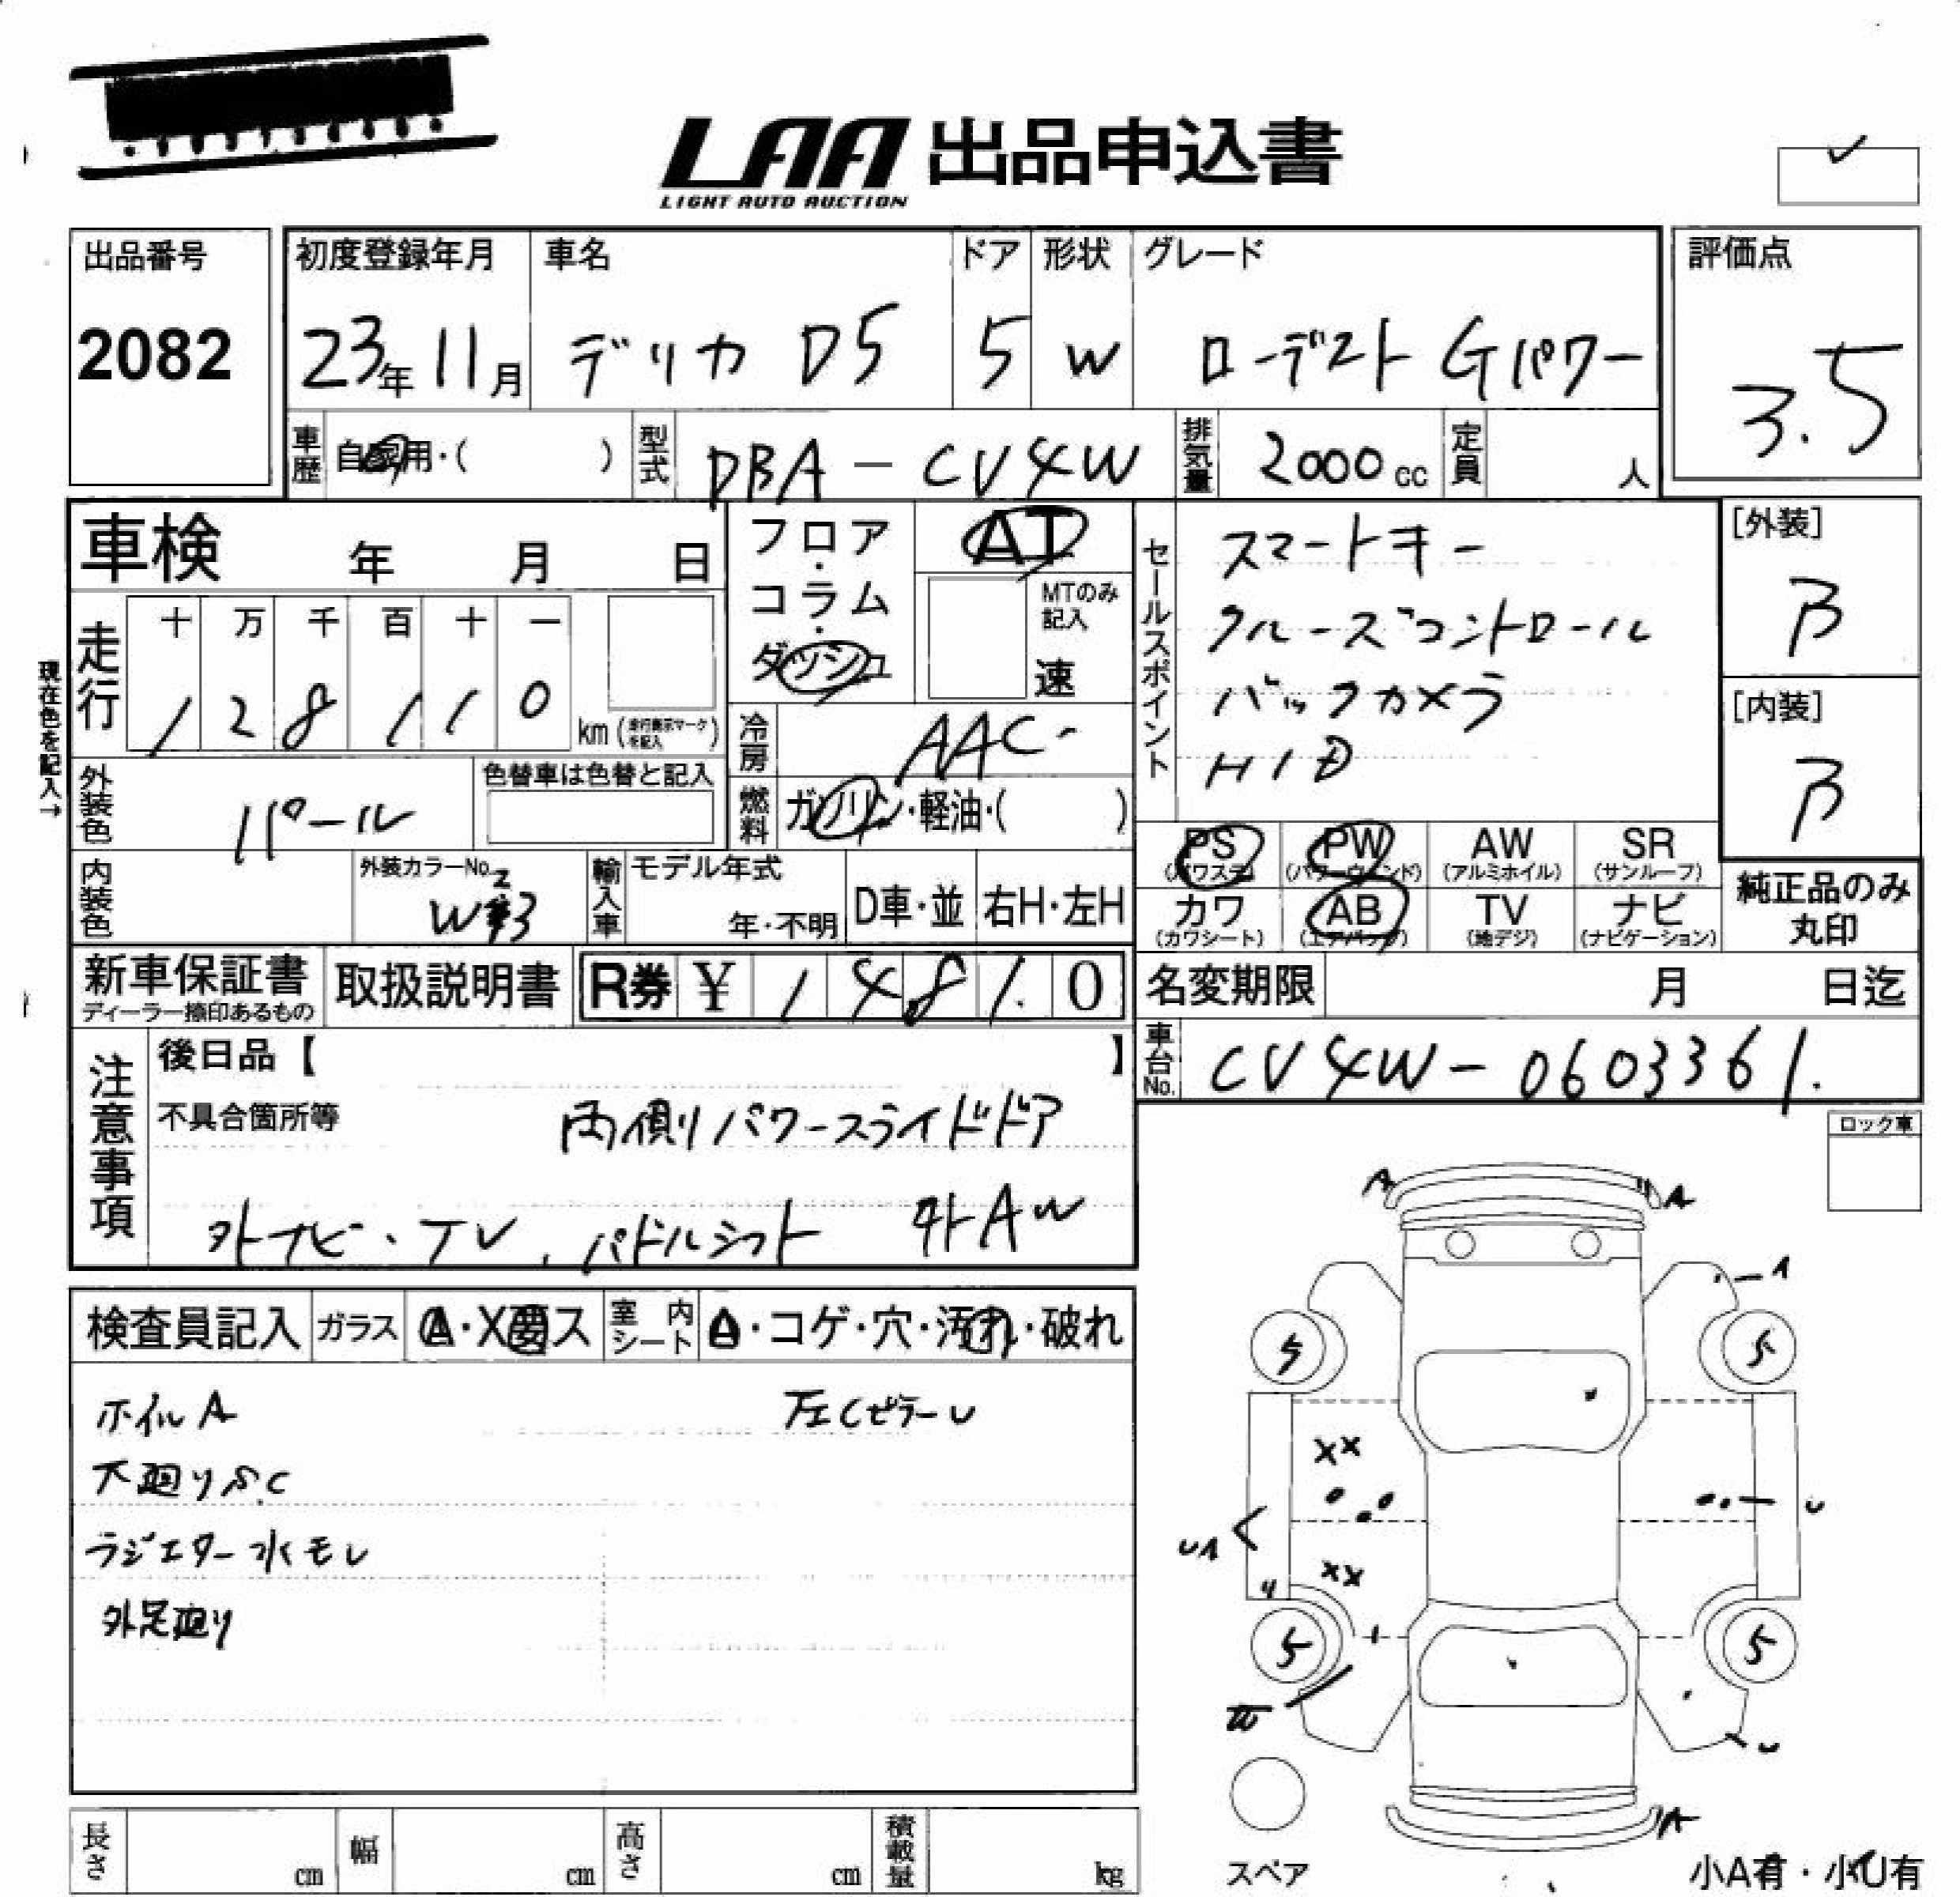 LAA 出品申込書
LIGHT AUTO AUCTION
出品番号
2082
初度登録年月
23年11月
車名
デリカ D5
ドア
5
形状
W
グレード
ローデスト Gパワー
評価点
3.5
車歴
自家用・( )
型式
DBA-CV4W
排気量
2000cc
定員
人
車検 年 月 日
フロア・コラム・ダッシュ
AT
MTのみ記入
速
セールスポイント
スマートキー
クルーズコントロール
バックカメラ
HID
[外装]
B
[内装]
B
現在色を記入→
走行
十 万 千 百 十 一
1 2 8 1 1 0
km (走行表示マークを記入)
冷房
AAC
外装色
パール
色替車は色替と記入
燃料
ガソリン・軽油・( )
PS
(パワステ)
PW
(パワーウィンド)
AW
(アルミホイル)
SR
(サンルーフ)
内装色
外装カラーNo.
輸入車
モデル年式
年・不明
D車・並
右H・左H
カワ
(カワシート)
AB
(エアバッグ)
TV
(地デジ)
ナビ
(ナビゲーション)
純正品のみ
丸印
新車保証書
ディーラー捺印あるもの
取扱説明書
R券 ¥ 1 4.8 1. 0
名変期限 月 日迄
車台No.
CV4W-0603361.
注意事項
後日品【 】
不具合箇所等
両側パワースライドドア
外ナビ・TV、パドルシフト 外AW
ロック車
検査員記入
ガラス
A・X要ス
室内シート
△・コゲ・穴・汚れ・破れ
ホイルA
左CピラーU
下廻りS.C
ラジエター水モレ
外足廻り
A
A
A
5
5
XX
UA
U
XX
5
5
U
A
スペア
小A有・小U有
長さ cm
幅 cm
高さ cm
積載量 kg